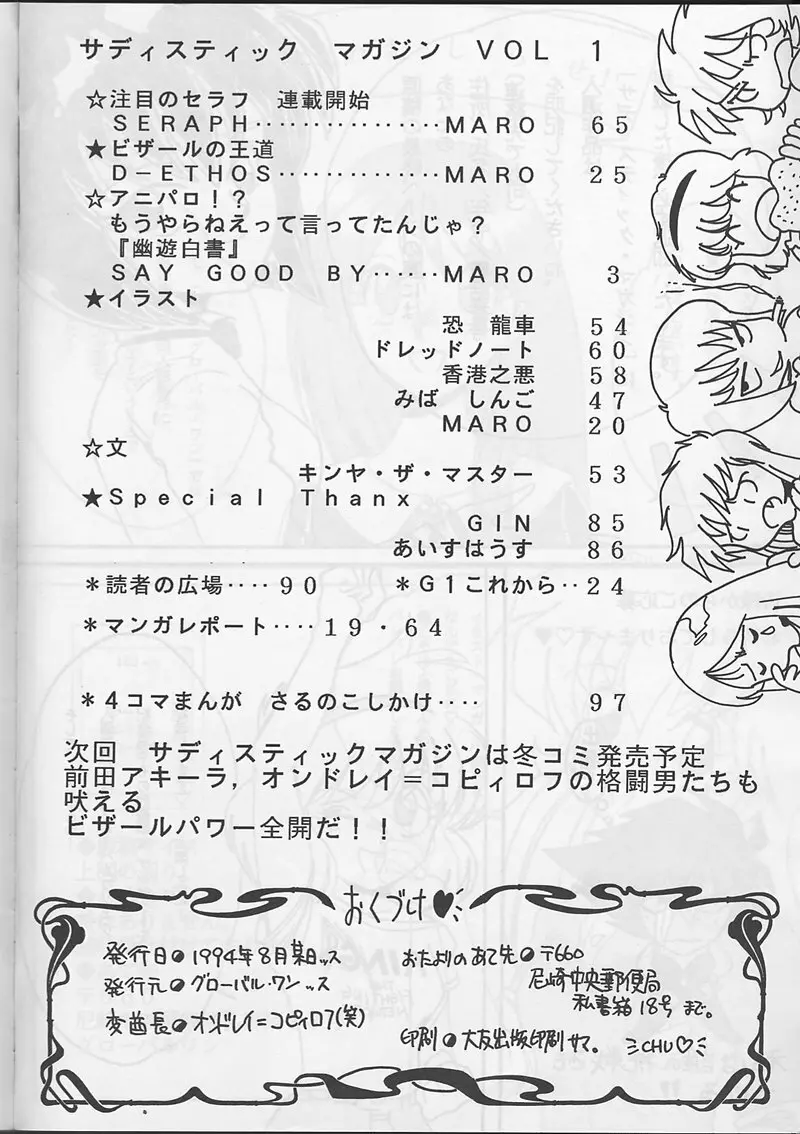 サディスティック　マガジン　VOL　1
☆注目のセラフ　連載開始
SERAPH‥‥‥‥‥‥‥‥MARO　65
★ビザールの王道
D−ETHOS‥‥‥‥‥‥‥MARO　25
☆アニパロ！？
もうやらねえって言ってたんじゃ？
『幽遊白書』
SAY　GOOD　BY‥‥‥MARO　3
★イラスト
恐　龍車　54
ドレッドノート　60
香港之悪　58
みば　しんご　47
MARO　20
☆文
キンヤ・ザ・マスター　53
★Special　Thanx
GIN　85
あいすはうす　86
＊読者の広場‥‥90　＊G1これから‥24
＊マンガレポート‥‥19・64
＊4コマまんが　さるのこしかけ‥‥　97
次回　サディスティックマガジンは冬コミ発売予定
前田アキーラ，オンドレイ＝コピィロフの格闘男たちも
吠える
ビザールパワー全開だ！！
おくづけ♥
発行日●1994年8月某日ッス
発行元●グローバル・ワンッス
変酋長●オンドレイ=コピィロフ(笑)
おたよりのあて先●〒660
尼崎中央郵便局
私書箱18号まで。
印刷●大友出版印刷サマ。　CHU♡